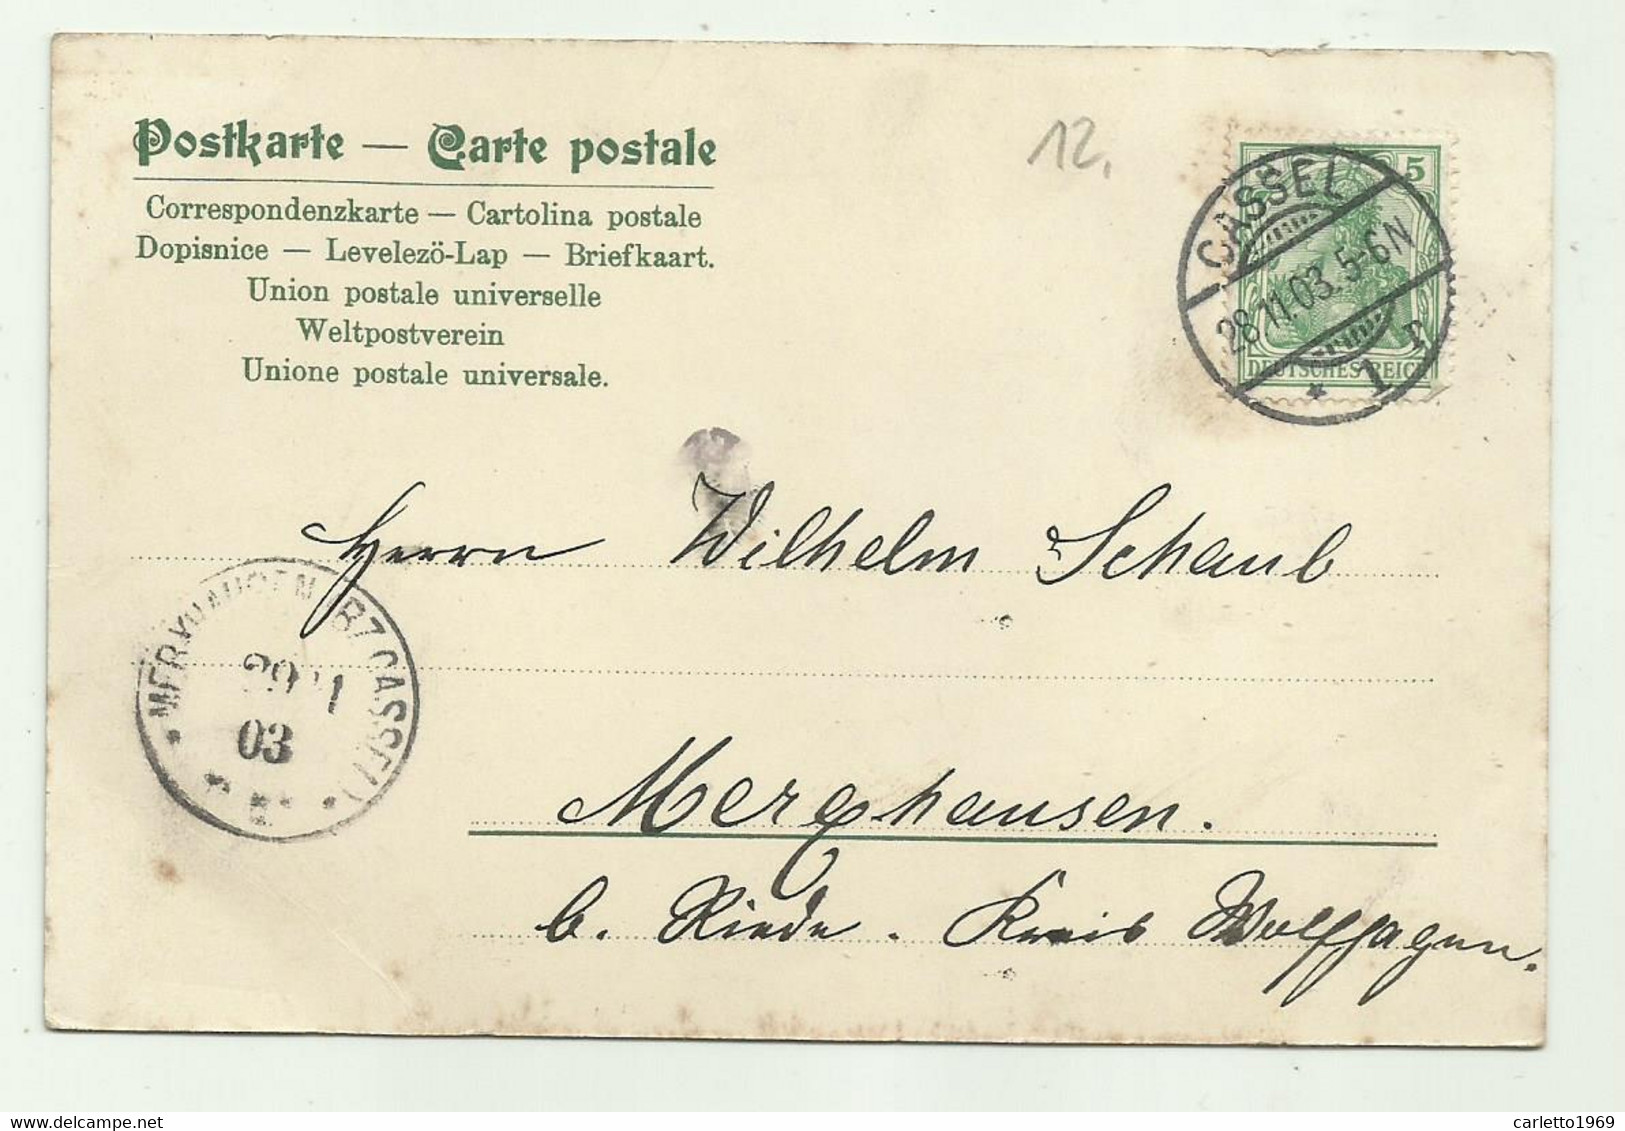 Postkarte — Carte postale
Correspondenzkarte — Cartolina postale
Dopisnice — Levelezö-Lap — Briefkaart.
Union postale universelle
Weltpostverein
Unione postale universale.
12.
5
CASSEL
28.11.03. 5-6N
* 1 r
DEUTSCHES REICH
Herrn Wilhelm Schaub
(BZ CASSEL)
03
Merxhausen.
b. Riede. Kreis Wolfhagen.
carletto1969